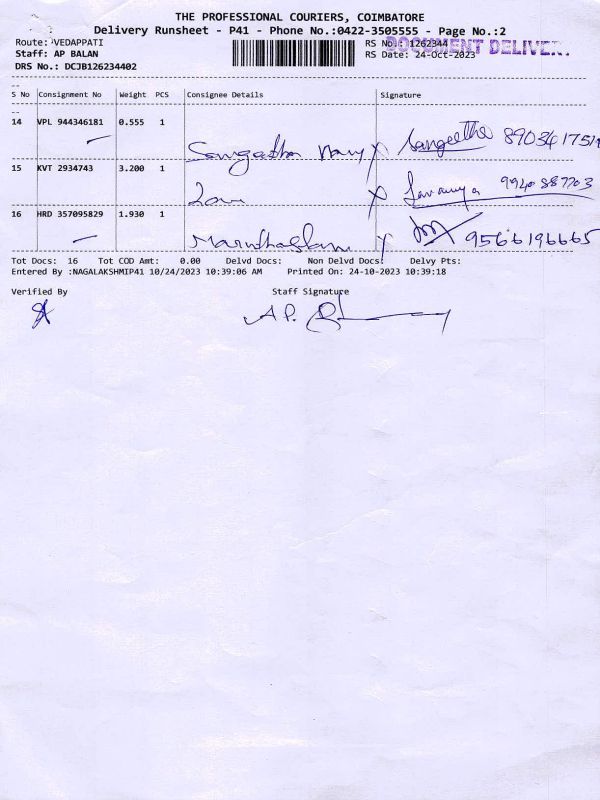 THE PROFESSIONAL COURIERS, COIMBATORE
Delivery Runsheet - P41 - Phone No.:0422-3505555 - Page No.:2
Route: VEDAPPATI
RS No.: 1262344
DOCUMENT DELIVER
Staff: AP BALAN
RS Date: 24-Oct-2023
DRS No.: DCJB126234402
S No Consignment No Weight PCS Consignee Details Signature
14 VPL 944346181 0.555 1
Sangeetha 890341751
15 KVT 2934743 3.200 1
Saranya 9940887703
16 HRD 357095829 1.930 1
9566196665
Tot Docs: 16 Tot COD Amt: 0.00 Delvd Docs: Non Delvd Docs: Delvy Pts:
Entered By :NAGALAKSHMIP41 10/24/2023 10:39:06 AM Printed On: 24-10-2023 10:39:18
Verified By Staff Signature
A.P.